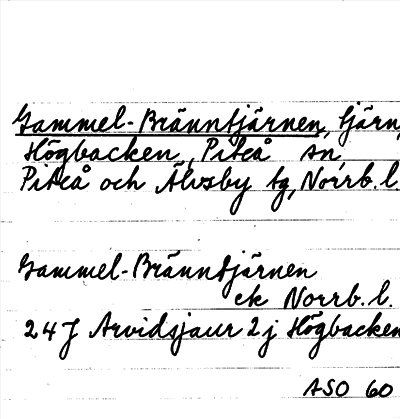 Gammel-Bränntjärnen, tjärn,
Högbacken, Piteå sn,
Piteå och Älvsby tg, Norrb. l.
Gammel-Bränntjärnen
ek Norrb. l.
24J Arvidsjaur 2j Högbacken
ASO 60